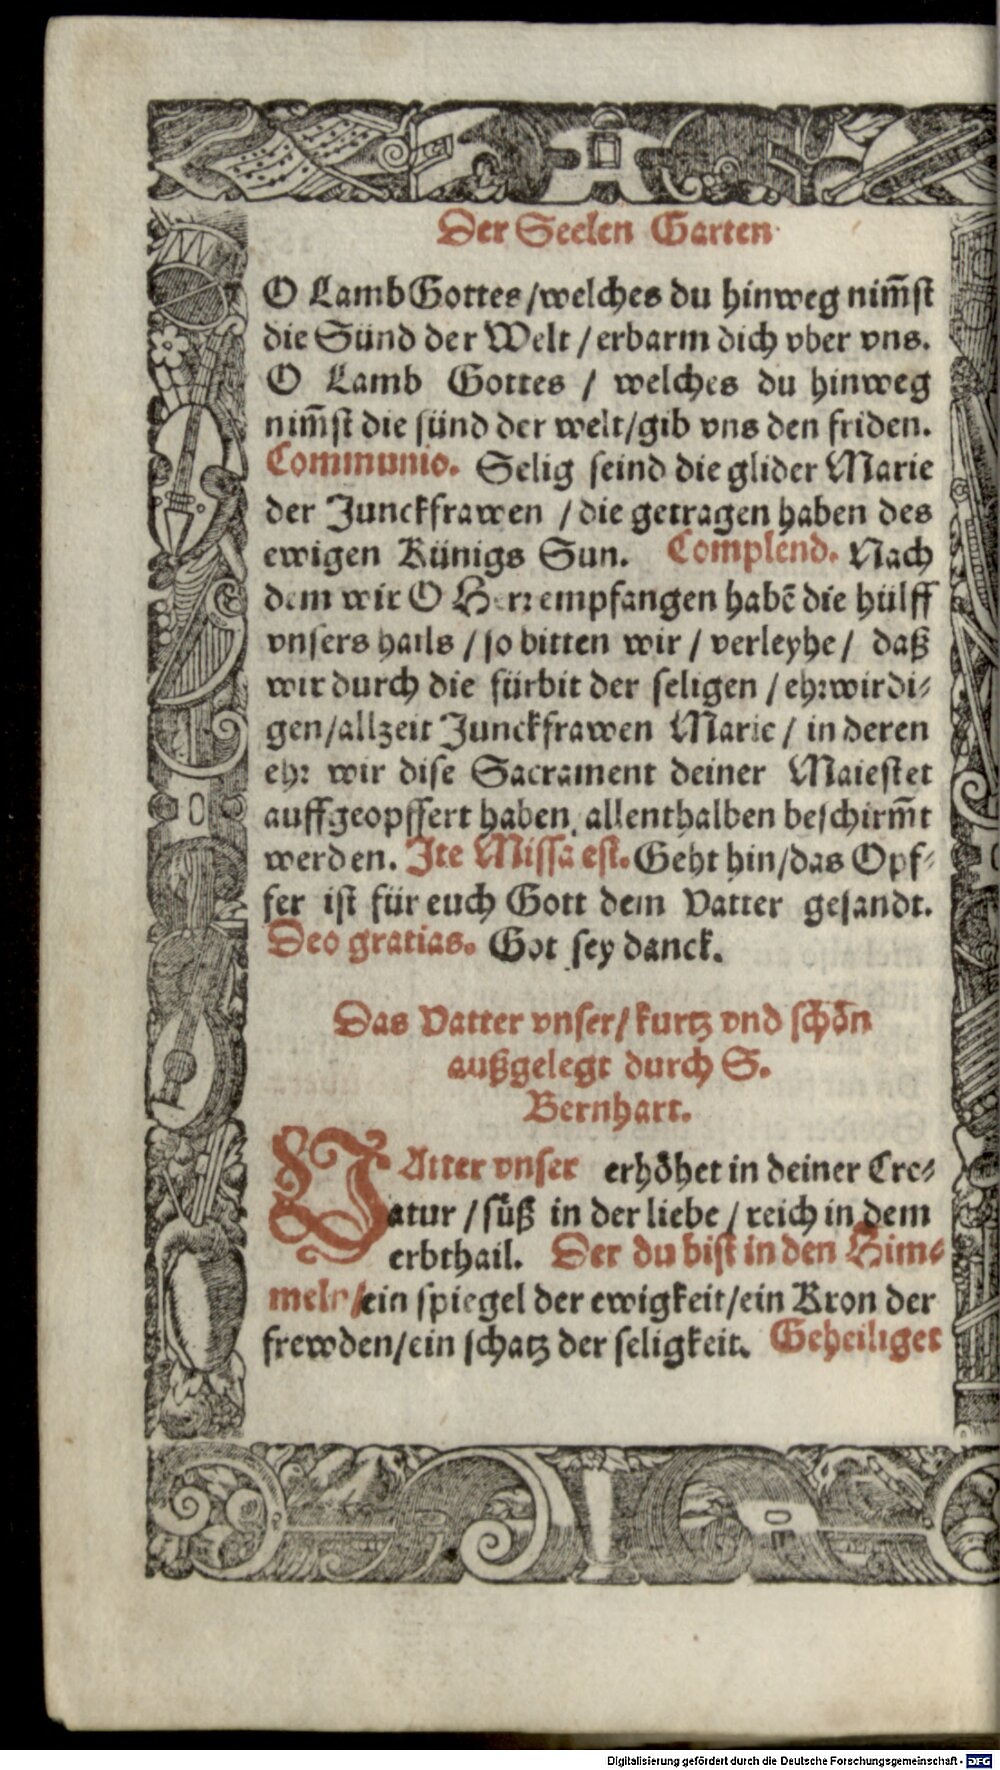 Der Seelen Garten
O Lamb Gottes / welches du hinweg nim̄st
die Sünd der Welt / erbarm dich vber vns.
O Lamb Gottes / welches du hinweg
nim̄st die sünd der welt/gib vns den friden.
Communio. Selig seind die glider Marie
der Junckfrawen / die getragen haben des
ewigen Künigs Sun. Complend. Nach
dem wir O Herr empfangen habē die hülff
vnsers hails / so bitten wir / verleyhe / daß
wir durch die fürbit der seligen / ehrwirdi⸗
gen/allzeit Junckfrawen Marie / in deren
ehr wir dise Sacrament deiner Maiestet
auffgeopffert haben, allenthalben beschirm̄t
werden. Ite Missa est. Geht hin/das Opf⸗
fer ist für euch Gott dem Vatter gesandt.
Deo gratias. Got sey danck.
Das Vatter vnser/ kurtz vnd schön
außgelegt durch S.
Bernhart.
VAtter vnser erhöhet in deiner Cre⸗
atur / süß in der liebe / reich in dem
erbthail. Der du bist in den Him⸗
meln /ein spiegel der ewigkeit/ein Kron der
frewden/ein schatz der seligkeit. Geheiliget
Digitalisierung gefördert durch die Deutsche Forschungsgemeinschaft - DFG